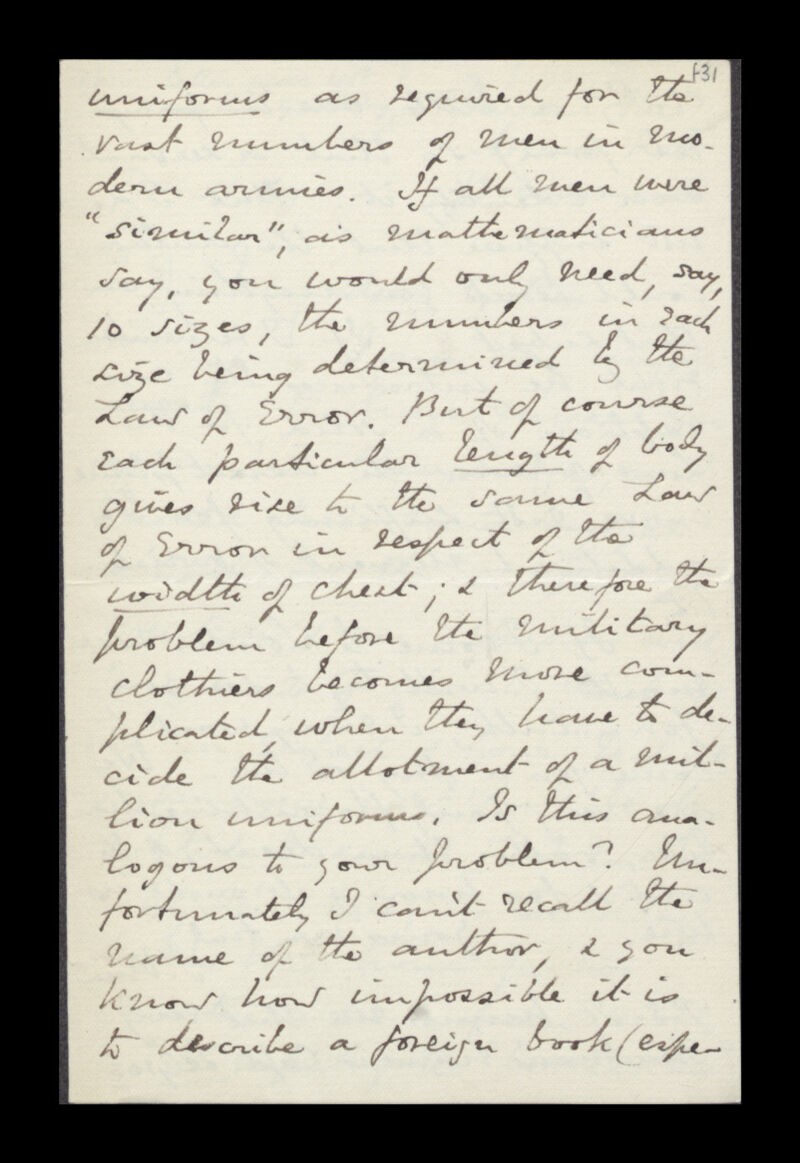 131
uniforms as required for the
vast numbers of men in mo-
dern armies. If all men were
"similar", as mathematicians
say, you would only need, say,
10 sizes, the numbers in each
size being determined by the
Law of Error. But of course
each particular length of body
gives rise to the same Law
of Error in respect of the
width of chest; & therefore the
problem before the military
clothiers becomes more com-
plicated, when they have to de-
cide the allotment of a mil-
lion uniforms. Is this ana-
logous to your problem? Un-
fortunately I can't recall the
name of the author, & you
know how impossible it is
to describe a foreign book (espe-